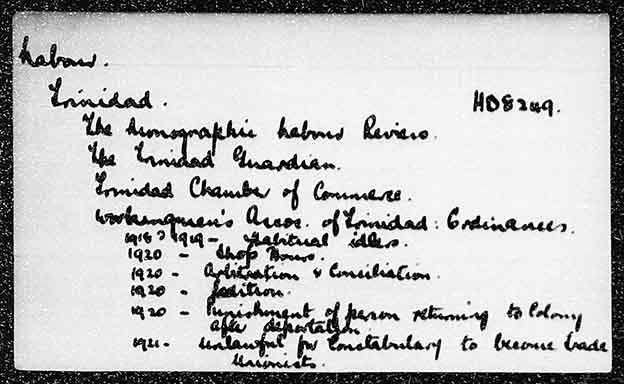 Labour.
Trinidad. HD8249.
The Monographic Labour Review.
The Trinidad Guardian.
Trinidad Chamber of Commerce.
Workingmen's Assoc. of Trinidad: Ordinances.
1918? 1919 - Habitual idlers.
1920 - Shop Hours.
1920 - Arbitration & Conciliation.
1920 - Sedition.
1920 - Punishment of person returning to Colony
after deportation.
1921 - Unlawful for Constabulary to become trade
Unionists.